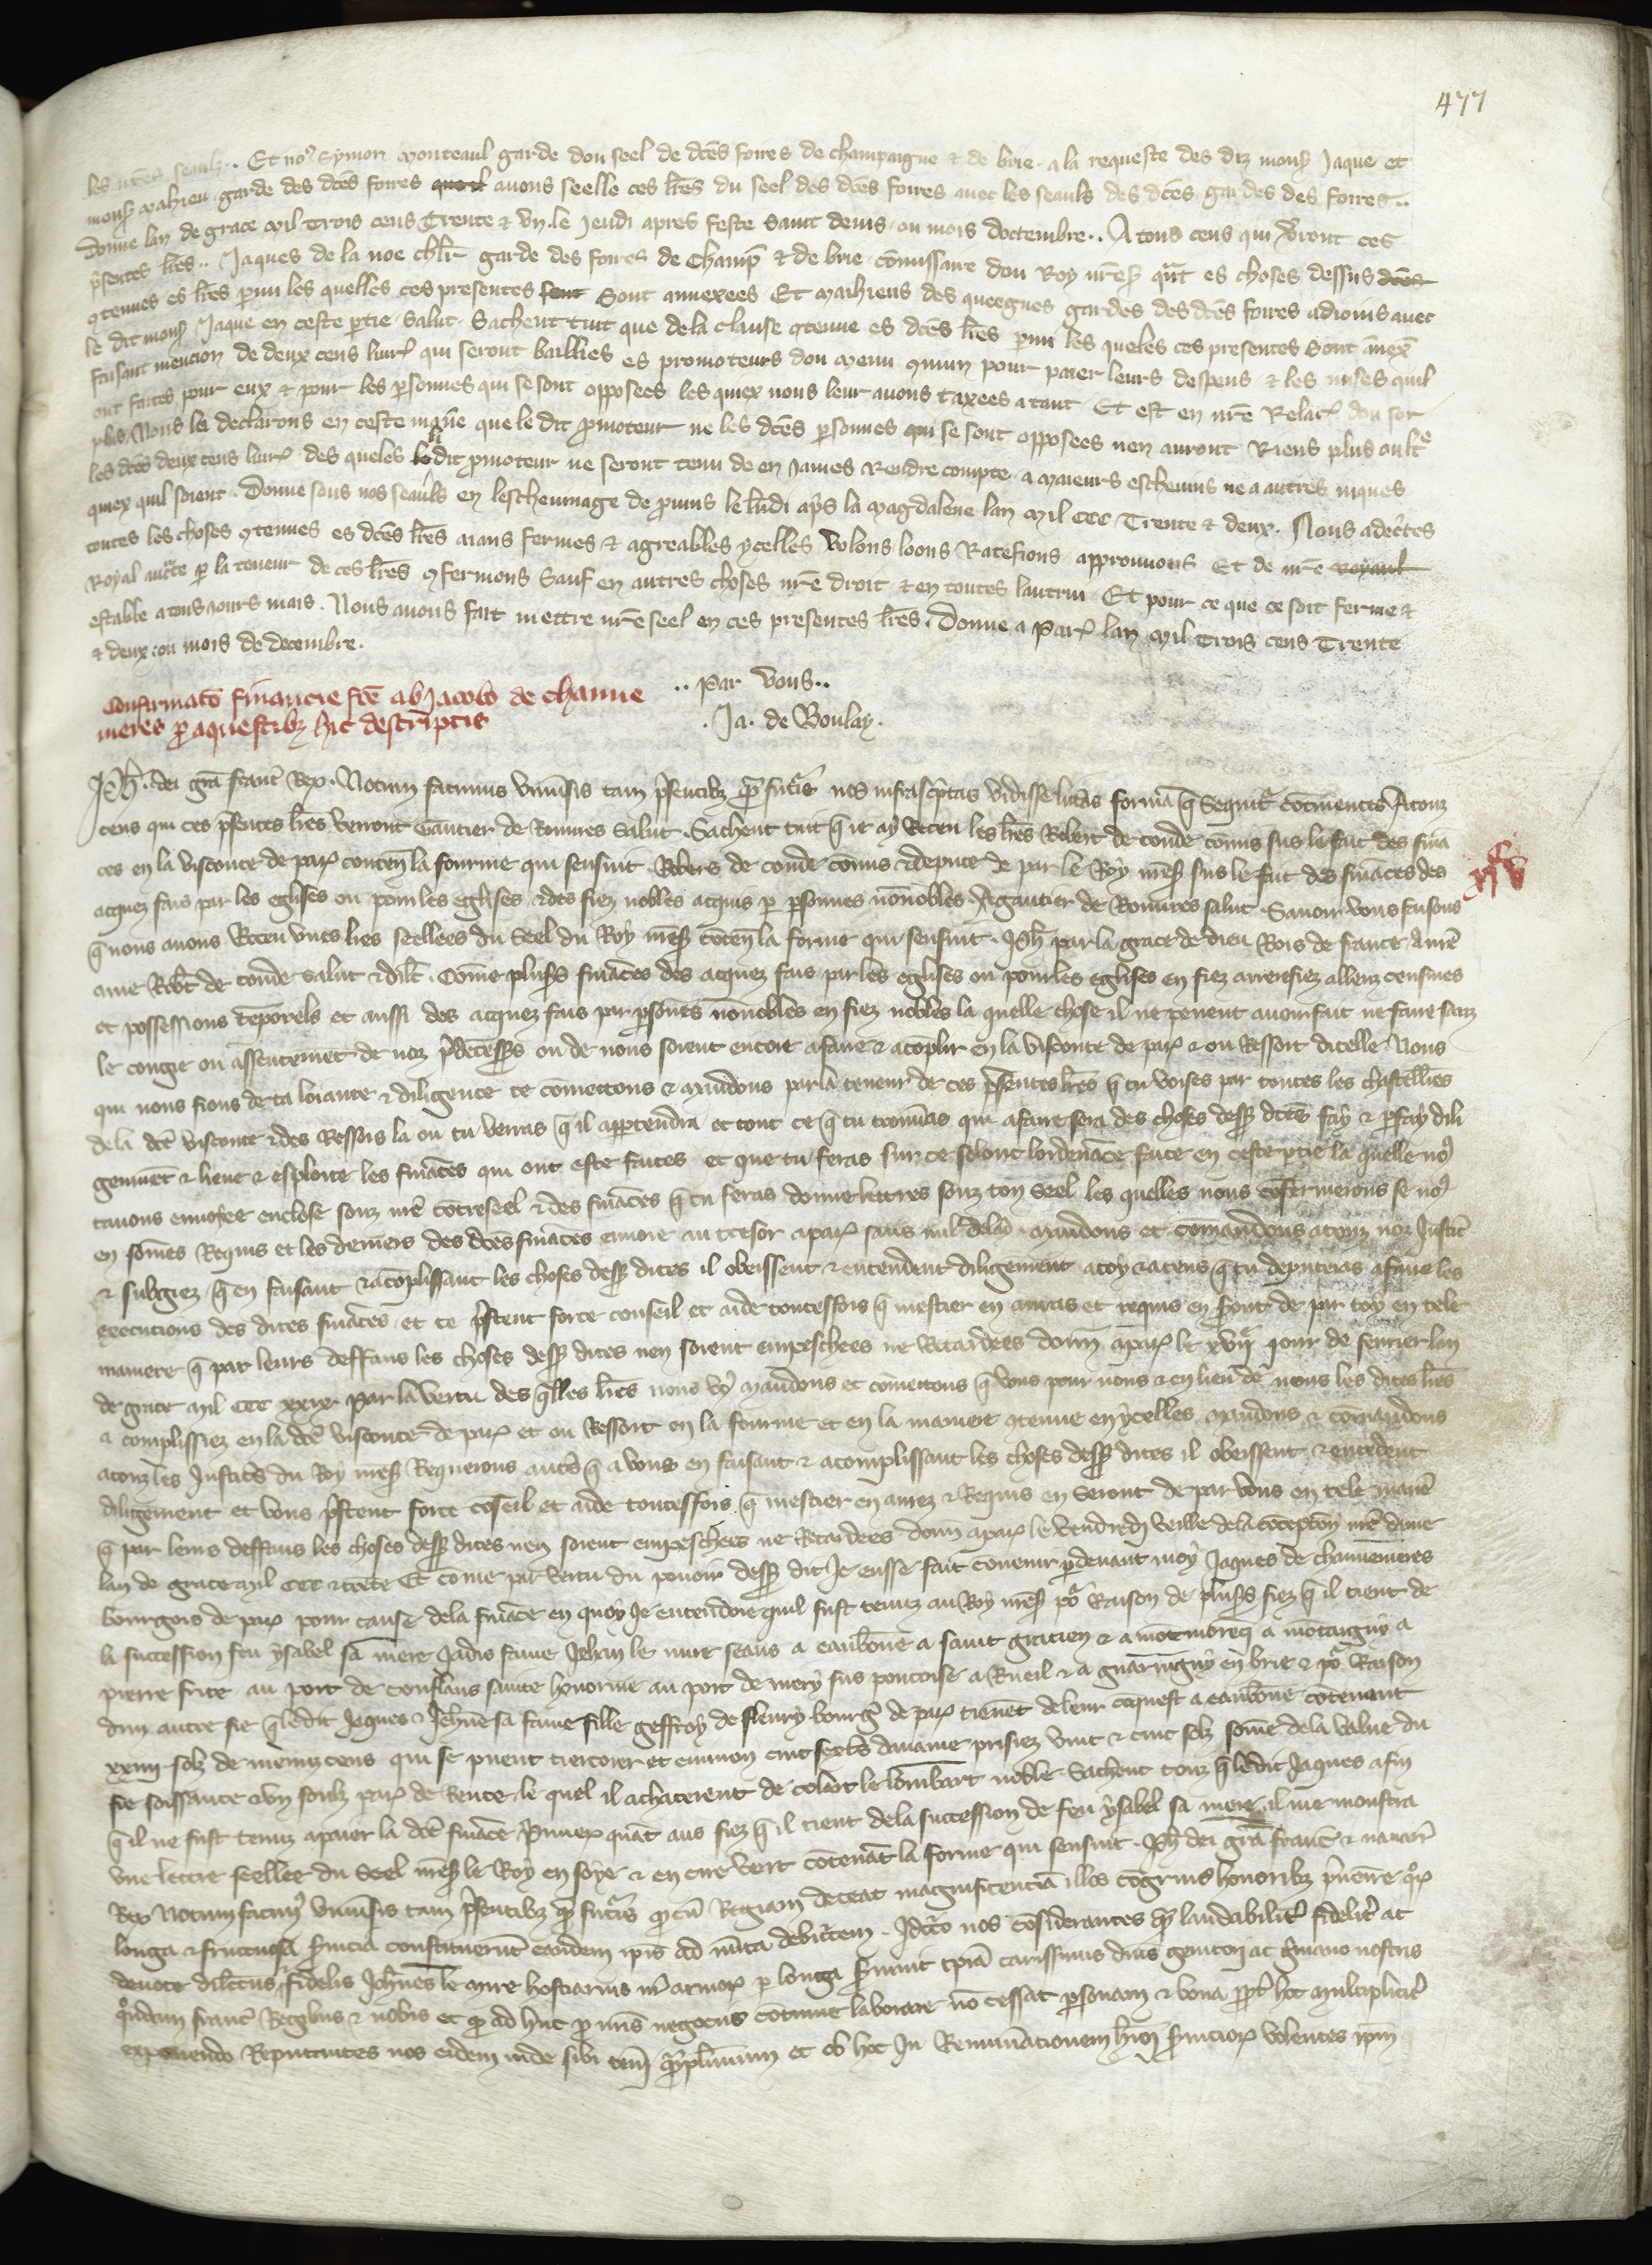 477
les nr̄es seaulz.. Et nos Symon Monteaul garde dou seel de dc̄es foires de champaigne & de brie . a la requeste des diz mons Jaque et
mons Mahieu garde des dc̄es foires quoil avons seelle ces lr̄es du seel des dc̄es foires avec les seauls des dc̄es gardes des foires..
Donne lan de grace Mil Trois cens Trente & un . le Jeudi apres feste Saint Denis ou mois doctembre.. A tous ceus qui v̄ront ces
p̄sentes lr̄es .. Jaques de la noe chl̄r garde des foires de Champ̄ & de brie . cōmissaire dou Roy nr̄e S. qūt es choses dessus dc̄es
9tenues es lr̄es parmi les quelles ces presentes sont Sont annexees Et Mahieus des queegnes gardes des dc̄es foires adioins avec
le dit mons Jaque en ceste ptie . Salut . Sachent tuit que de la clause 9tenue es dc̄es lr̄es parmi les queles ces presentes Sont ānex̄
faisant mencion de deux cens livr̄ qui seront baillies es promoteurs dou menu 9mun pour paier leurs despens & les mises quil
ont faites pour eux & pour les psonnes qui se sont opposees les quiex nous leur avons taxees a tant Et est en nr̄e Relac̄ dou sor
plus Nous la declarons en ceste maniē que le dit pmoteur ne les dc̄es psonnes qui se sont opposees nen auront Riens plus oult̄e
les dc̄es deux cens livr̄ des queles li dit pmoteur ne seront tenu de en James Rendre compte . a Maieurs eschevins ne a autres niques
quiex quil soient . Donne sous nos seauls en leschevinage de pvins le lūdi ap̄s la Magdalene lan Mil CCC Trente & deux . Nous adec̄tes
toutes les choses 9tenues es dc̄es lr̄es aians fermes & agreables ycelles Volons loons Ratefions . approuvons Et de nr̄e royaul
Royal auct̄e p la teneur de ces lr̄es 9fermons Sauf en autres choses nr̄e droit & en toutes lautrui . Et pour ce que ce soit ferme &
estable a tous jours mais . Nous avons fait mettre nr̄e seel en ces presentes lr̄es . Donne a Par̄ lan Mil Trois cens Trente
& deux : ou mois de decembre .
.. Par Vous ..
. Ja . de Boulay .
Confirmato financie fc̄e ab Jacobo de chaune
meres p aquestibz hic descriptis
Ph̄ . dei grā franc̄ Rex . Notum facimus univ̄sis tam p̄sentibz q̄ futuris nos infrascptas vidisse litt̄as formā q̄ Sequit̄ cōtinentes A touz
ceus qui ces p̄sentes lr̄es verront Gautier de Romires Salut . Sachent tuit q̄ ie ay Receu les lr̄es Robert de conde cōmis sus le fait des finā
ces en la visconte de par̄ conten̄ la fourme qui sensuit . Robers de conde cōmis & depute de par le Roy nr̄e s. sus le fait des fināces des
acquez fais par les eglises ou pour les eglises & des fiez nobles acquis p psonnes nōnobles A gautier de Romires salut . Savoir vous faisons
q̄ nous avons Receu unes lr̄es seellees du Seel du Roy nr̄e s. cōten̄ la forme qui sensuit . Ph̄ par la grace de dieu Rois de france A nr̄e
ame Rob̄t de conde salut & dilc̄ . Cōme plus̄s fināces des acquez fais par les eglises ou pour les eglises en fiez arrerefiez alleuz censives
et possessions tēporels et aussi des acquez fais par psonnes nōnobles en fiez nobles la quelle chose il ne peuent avoir fait ne faire sanz
le congie ou assentemēt de noz p̄decess̄s ou de nous soient encore a faire & acōplir en la visconte de par̄ & ou Ressort dicelle Nous
qui nous fions de ta loiaute & diligence te cōmettons & mandons par la teneur de ces p̄sentes lr̄es q̄ tu voises par toutes les chastellies
de la dc̄e visconte & des Ressors la ou tu verras q̄ il apptendra et tout ce q̄ tu trouv̄as qui a faire sera des choses dess̄ dc̄es fay & pfay dili
genmēt & lieve & esploite les fināces qui ont este faites et que tu feras sur ce selonc lordenāce faite en ceste ptie la quelle nos
tavons envoyee enclose souz nr̄e cōtreseel & des fināces q̄ tu feras donne lettres souz ton seel les quelles nous cōfermerons se nos
en sōmes Requis et les deniers des dc̄es fināces envoie au tresor a par̄ sans nul delay . Mandons et cōmandons a touz noz Justic̄
& subgiez q̄ en faisant & acōplissant les choses dess̄ dites il obeissent & entendent diligēment a toy & a ceus q̄ tu deputeras a faire les
execucions des dites fināces . et te p̄stent force conseil et aide toutesfois q̄ mestier en auras et requis en s̄ont de par toy en tele
maniere q̄ par leurs deffaus les choses dess̄ dites nen soient empeschees ne Retardees donn̄ a par̄ le xviij̄ jour de fevrier lan
de grace mil ccc xxix . Par la vertu des q̄lles lr̄es nous v9 mandons et cōmettons q̄ vous pour nous & en lieu de nous les dites lr̄es
a complissiez en la dc̄e visconte de par̄ et ou Ressort en la fourme et en la maniere 9tenue en ycelles . Mandons & cōmandons
a touz les Justic̄s du Roy nr̄e s. Requerons autr̄s q̄ a vous en faisant & acomplissant les choses dess̄ dites il obeissent & entēdent
diligēment et vous p̄stent force cōseil et aide toutesfois q̄ mestier en aurez & Requis en Seront de par vous en tele maniē
q̄ par leurs deffaus les choses dess̄ dites nen soient empeschees ne Retardees donn̄ a par̄ le vendredi veille de la cōcepcōn nr̄e dame
lan de grace mil ccc & trēte Et cōme par vertu du povoir dess̄ dit Je eusse fait cōvenir pdevant moy Jaques de chauvemeres
bourgois de par̄ pour cause de la fināce en quoy Je entendoie quil fust tenuz au Roy nr̄e s. por Raison de plus̄s fiez q̄ il tient de
la succession feu ysabel sa mere Jadis fame Jehan le mire seans a eaubōne a saint gracien & a mōtmorēcy a mōtaigny a
pierre frite au port de conflans sainte honorine au port de mery sus pontoise a Rueil & a guarnigny en brie & por Raison
dun autre fie q̄ ledit Jaques & Jeh̄ne sa fame fille geffroy de fleury bourḡ de par̄ tienēt de leur cōquest a eaubōne cōtenant
xxiiij solz de menuz cens qui se puent tiercoier et environ cinc sext̄s davaine prisiez vint & cinc solz sōme de la value du
fie soissante & un soulz par̄ de Rente le quel il achaterent de colart le lombart noble Sachent touz q̄ ledit Jaques afin
q̄ il ne fust tenuz a paier la dc̄e fināce p̄mier quāt aus fiez q̄ il tient de la succession de feu ysabel sa mere il me monstra
une lettre seellee du seel nr̄e s. le Roy en soye & en cire vert cōtenāt la forme qui sensuit . Ph̄ dei grā franc̄ & navarr̄
Rex Notum facim9 univ̄sis tam p̄sentibz q̄ futuris q̄ cū Regiam deceat magnificenciā illos cōgruis honoribz p̄venire q̄r
longa & fructuosa s̄vicia constituerūt eandem ipis ad m̄ita debit̄cem . Idc̄co nos cōsiderantes q̄ laudabilit̄ fidelit̄ ac
devote dilectus & fidelis Joh̄nes le mire hostiarius nr̄ armor̄ p longa s̄vivit tp̄a carissimis dn̄is genitori ac ḡmano nostris
quondam franc̄ Regibus & nobis et q̄ ad huc p nr̄is negociis cōtinue laborare nō cessat psonam & bona ppt̄ hoc multiplicit̄
exponendo Reputantes nos eidem inde sibi ten̄ qplimum et ob hoc In Remun̄acionem h̄moi s̄vicior̄ volentes ip̄m